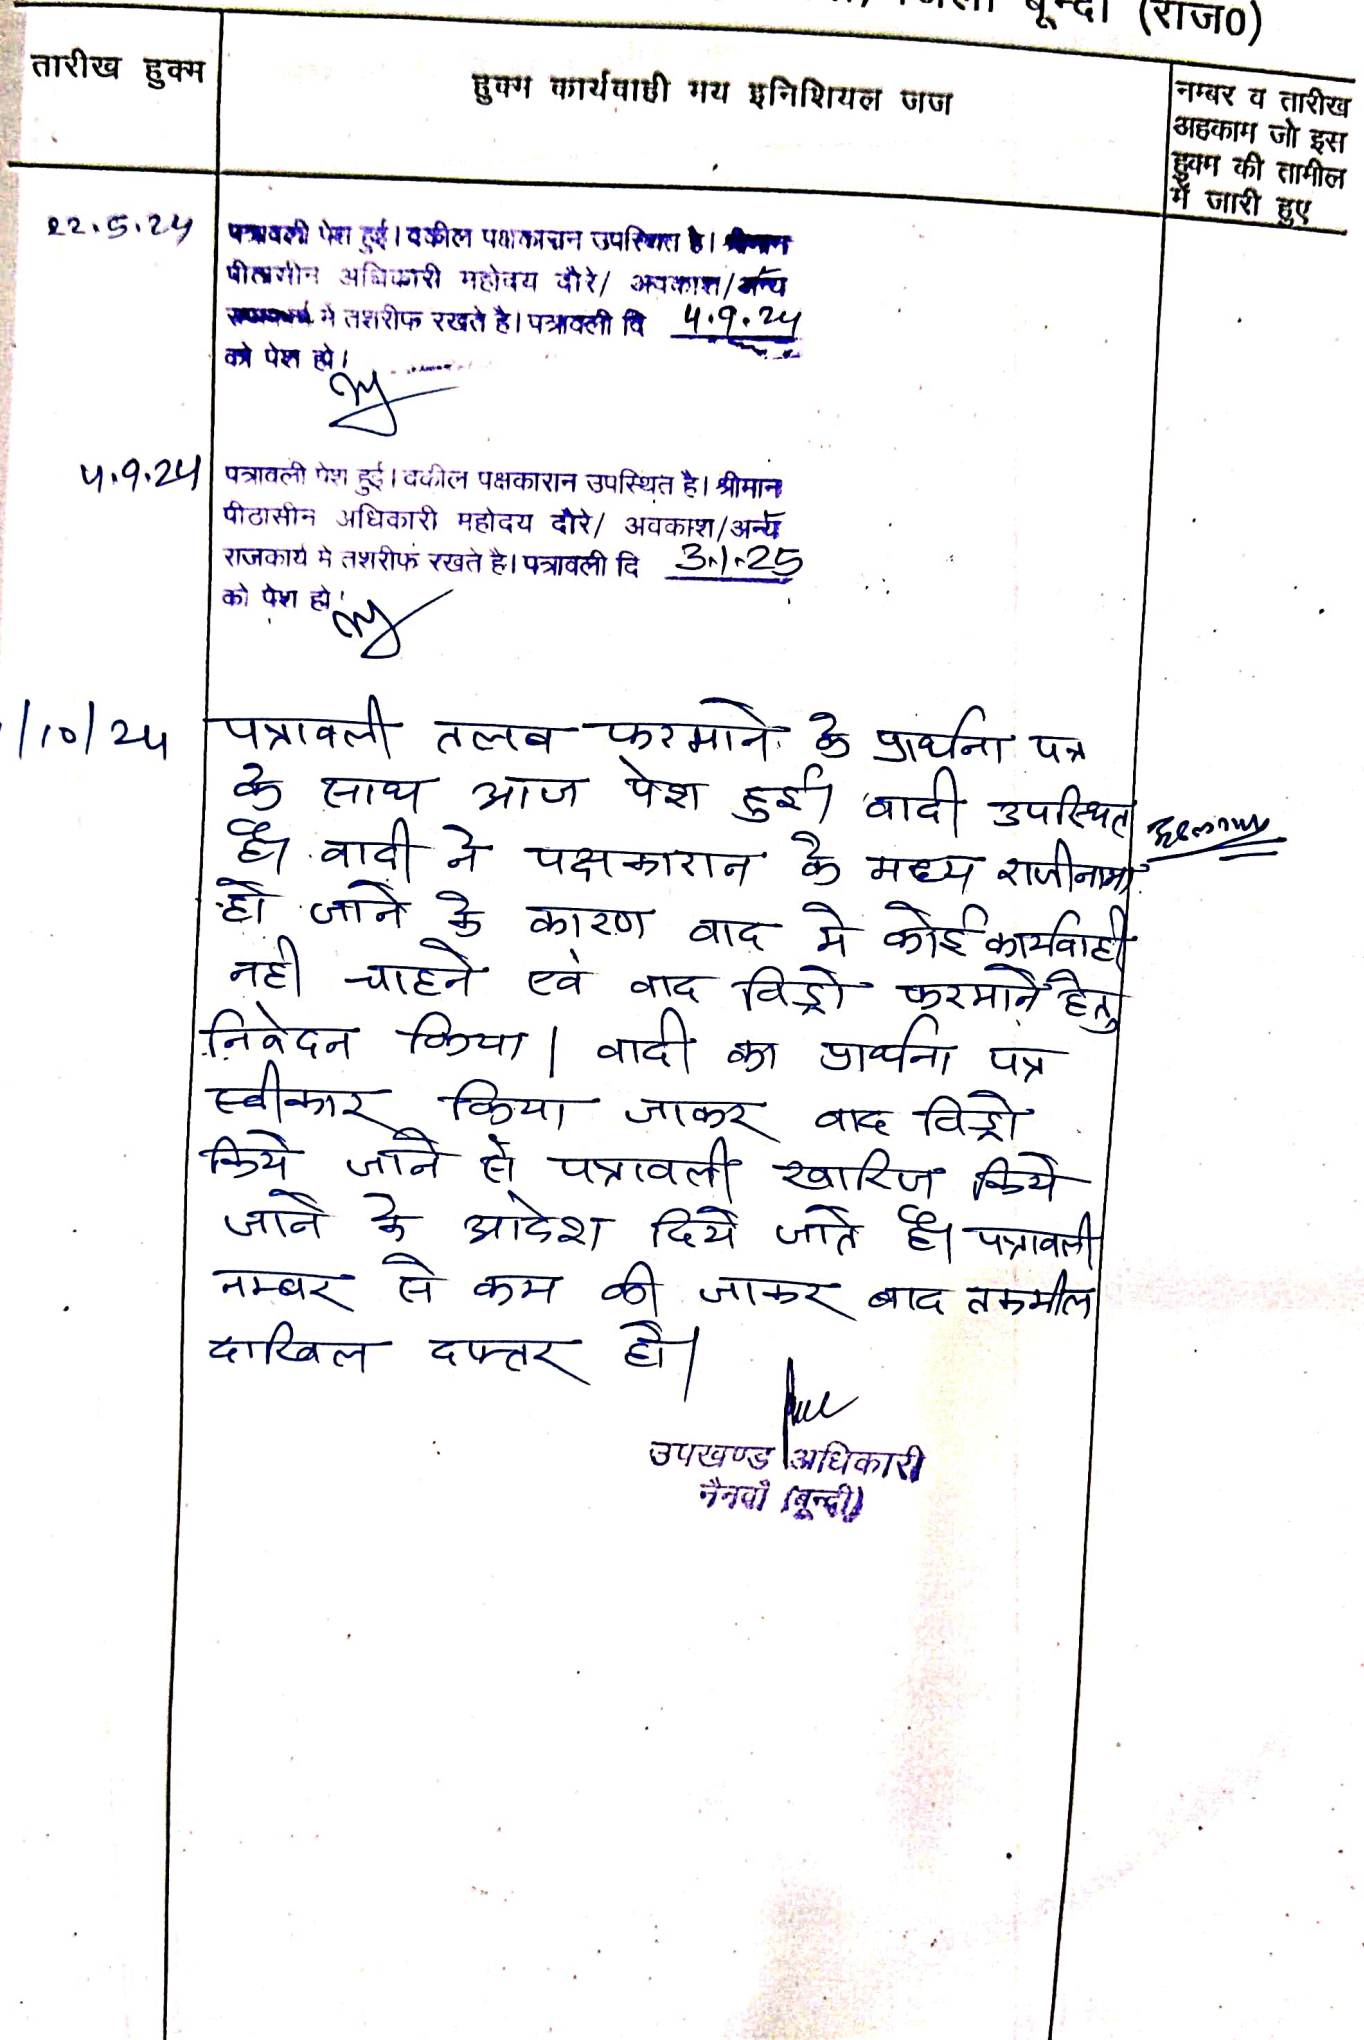 बून्दी (राज0)
तारीख हुक्म
हुक्म कार्यवाही मय इनिशियल जज
नम्बर व तारीख
अहकाम जो इस
हुक्म की तामील
में जारी हुए
22.5.24
पत्रावली पेश हुई। वकील पक्षकारान उपस्थित है। श्रीमान
पीठासीन अधिकारी महोदय दौरे/ अवकाश/अन्य
राजकार्य मे तशरीफ रखते है। पत्रावली दि 4.9.24
को पेश हो।
4.9.24
पत्रावली पेश हुई। वकील पक्षकारान उपस्थित है। श्रीमान
पीठासीन अधिकारी महोदय दौरे/ अवकाश/अन्य
राजकार्य मे तशरीफ रखते है। पत्रावली दि 3.1.25
को पेश हो
/10/24
पत्रावली तलब फरमाने के प्रार्थना पत्र
के साथ आज पेश हुई। वादी उपस्थित
है। वादी ने पक्षकारान के मध्य राजीनामा
हो जाने के कारण वाद मे कोई कार्यवाही
नही चाहने एवं वाद विड्रो फरमाने हेतु
निवेदन किया। वादी का प्रार्थना पत्र
स्वीकार किया जाकर वाद विड्रो
किये जाने से पत्रावली खारिज किये
जाने के आदेश दिये जाते है। पत्रावली
नम्बर से कम की जाकर बाद तकमील
दाखिल दफ्तर हो।
उपखण्ड अधिकारी
नैनवाँ (बून्दी)